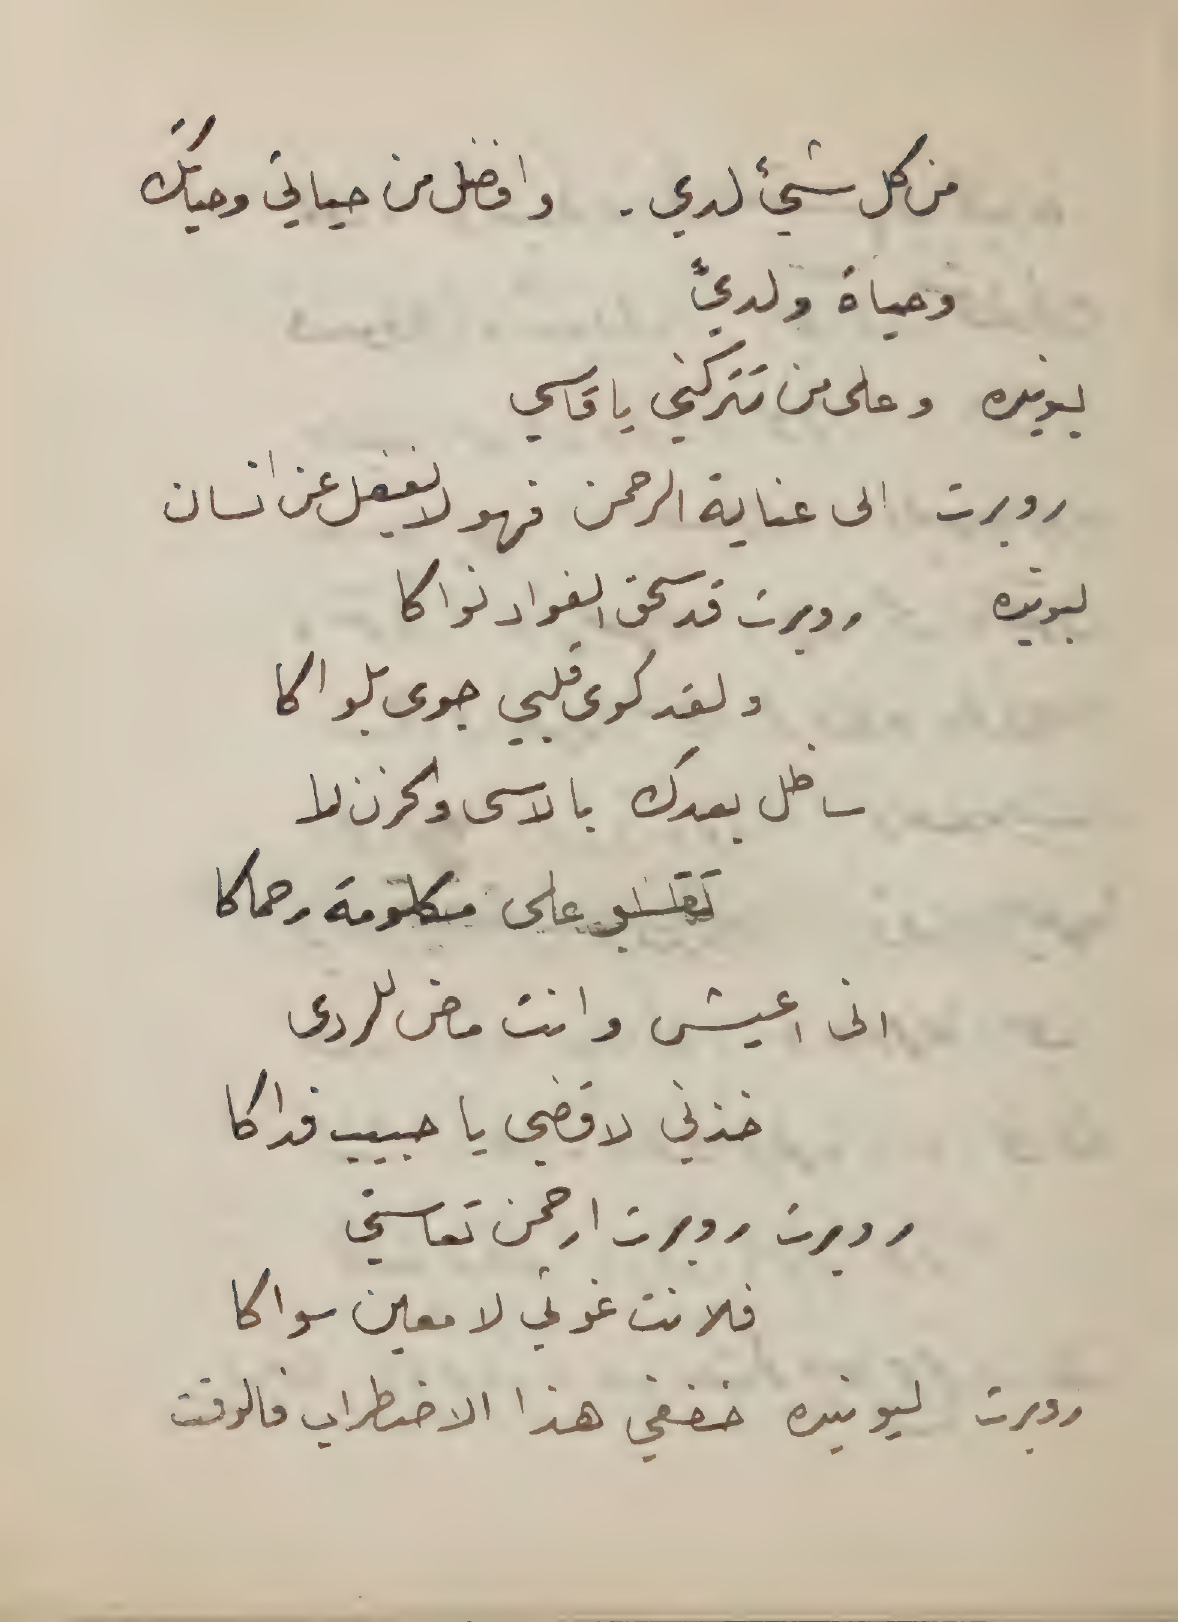 من كل شيئ لدي. وافضل من حياتي وحياتك
وحياة ولديّ
ليونيده وعلى من تتركني يا قاسي
روبرت الى عناية الرحمن فهو لا يغفل عن انسان
ليونيده روبرت قد سحق الفواد نواكا
ولقد كوى قلبي جوى بلواكا
ساظل بعدك بالاسى والحزن لا
تقسو على مكلومة رحماكا
انى اعيش وانت ماض للردى
خذني لاقضي يا حبيب فداكا
روبرت روبرت ارحمن تعاستي
فلانت غوثي لا معين سواكا
روبرت ليونيده خففي هذا الاضطراب فالوقت